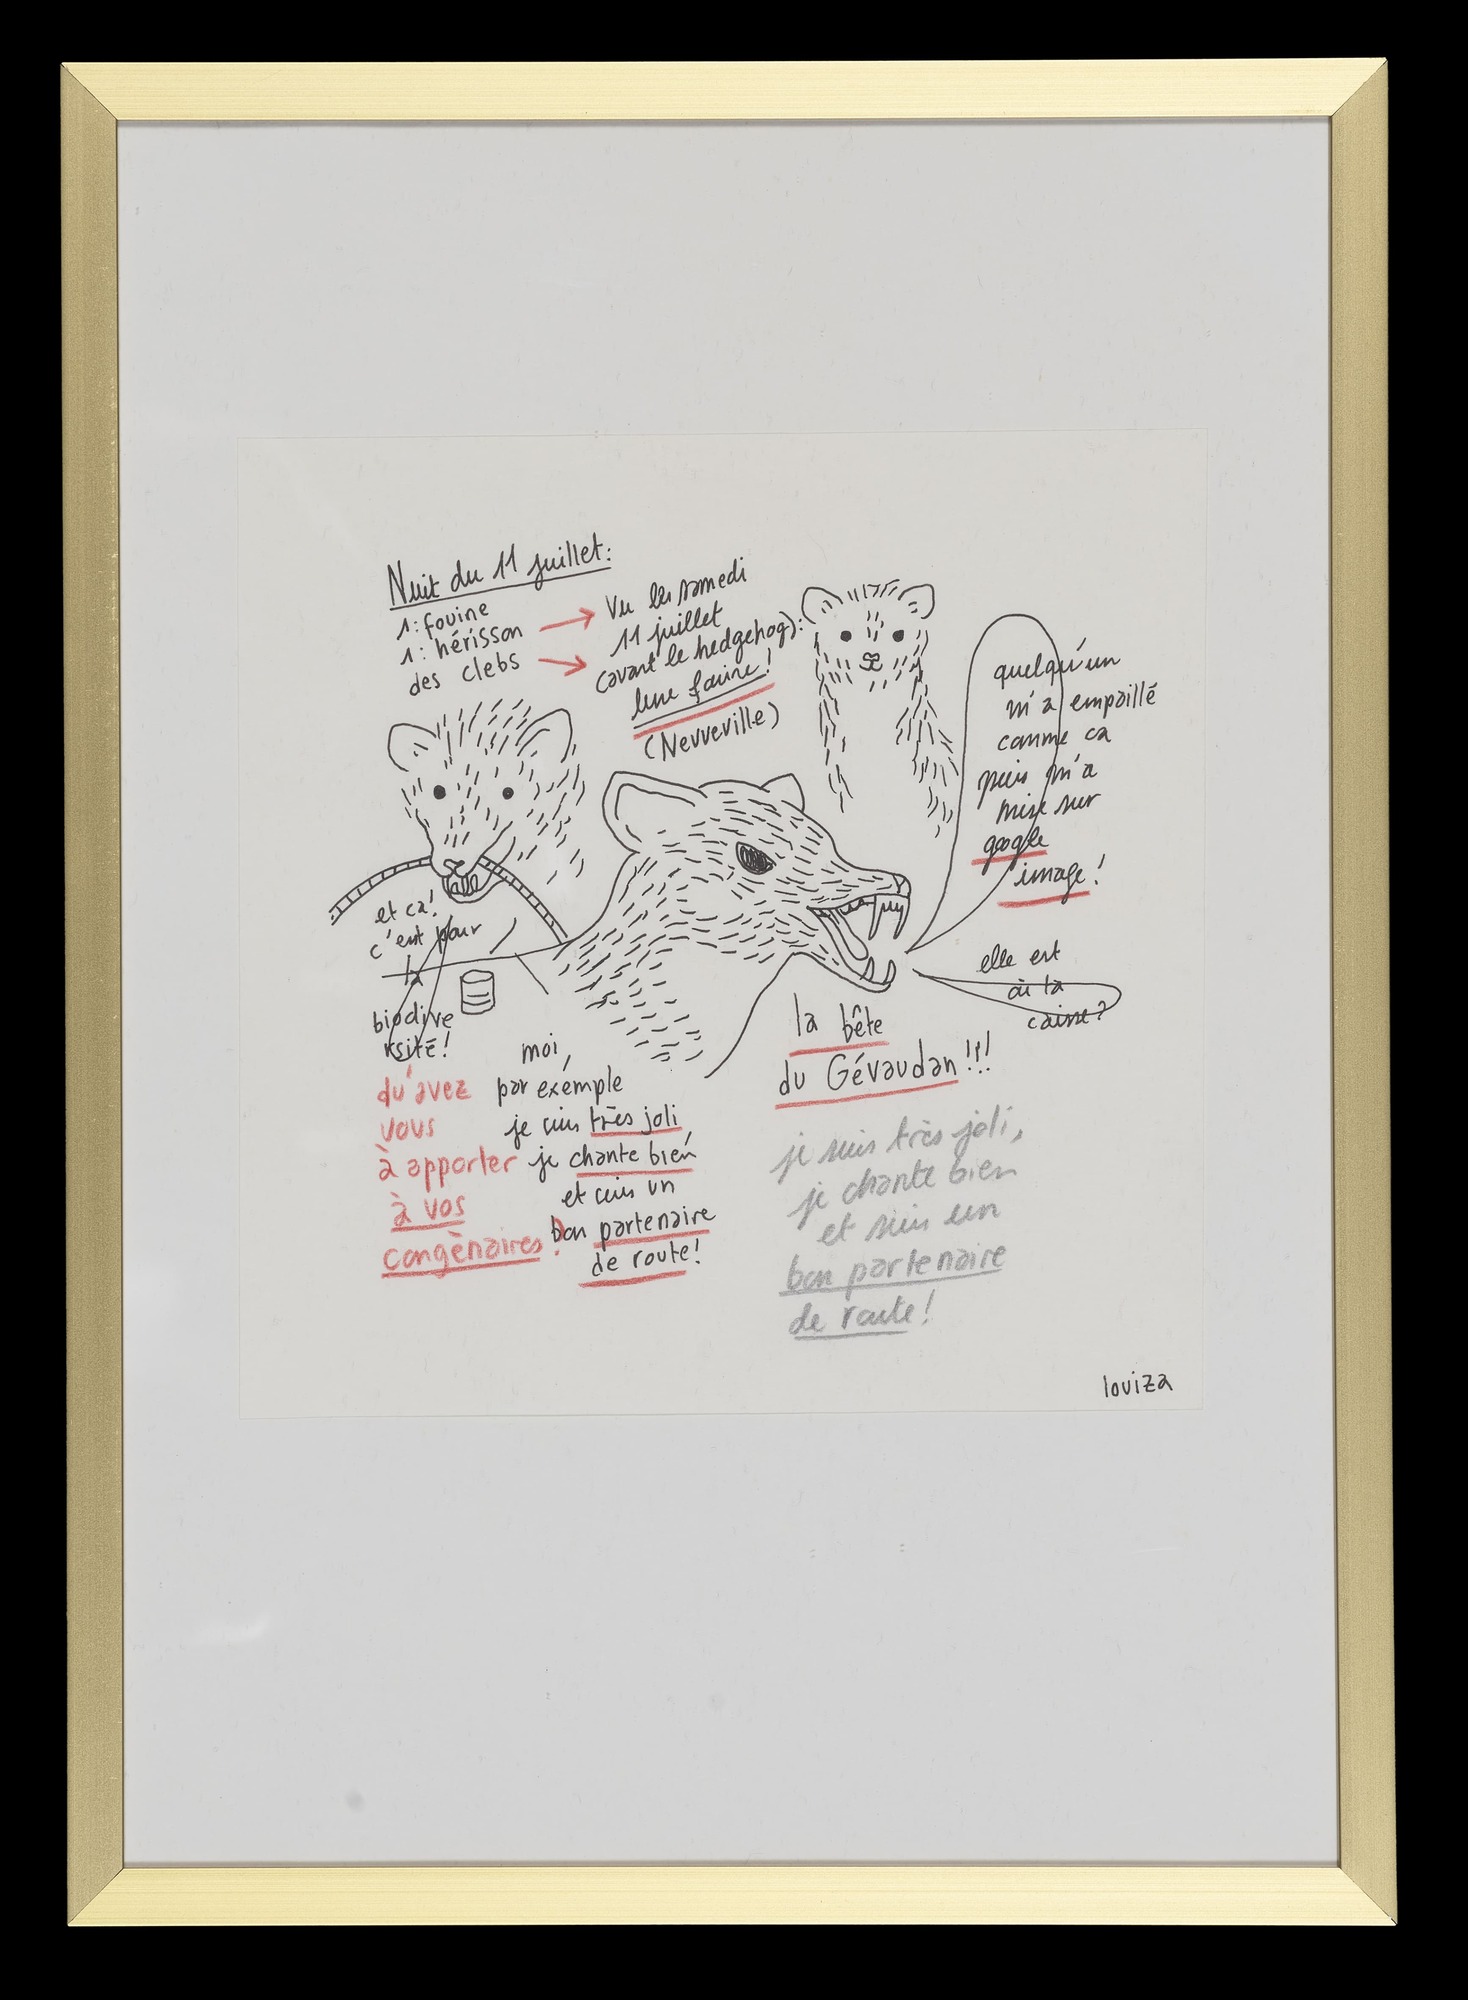 Nuit du 11 juillet:
1: fouine
1: hérisson
des clebs
Vu le samedi
11 juillet
(avant le hedgehog):
une fouine!
(Neuveville)
quelqu'un
m'a empaillé
comme ca
puis m'a
mise sur
google
image!
elle est
où la
caisse?
et ca!
c'est pour
la
biodive
rsité!
qu'avez
vous
à apporter
à vos
congènaires?
moi,
par exémple
je suis très joli,
je chante bien
et suis un
bon partenaire
de route!
la bête
du Gévaudan!!!
je suis très joli,
je chante bien
et suis un
bon partenaire
de route!
louiza